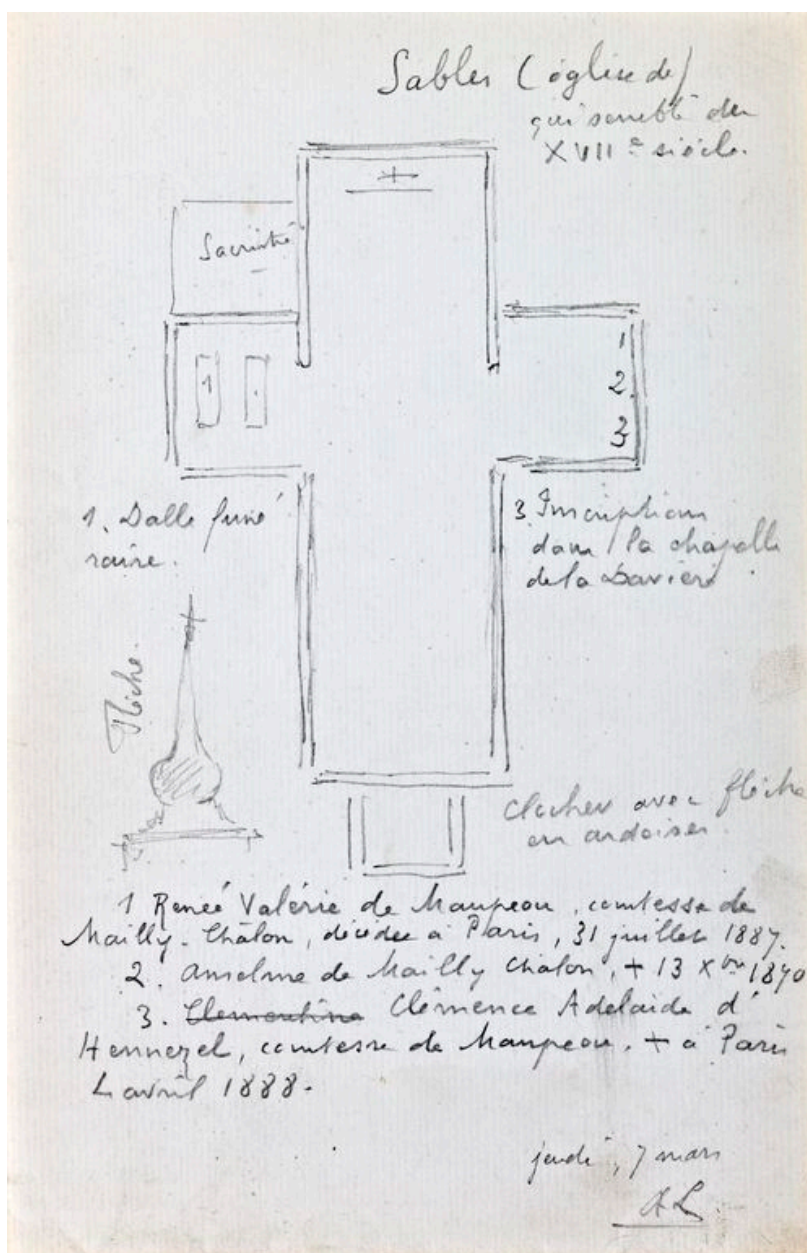 Sables (église de)
qui semble du
XVIIe siècle.
Sacristie
1
2
3
1
1. Dalle funé
raire.
3. Inscriptions
dans la chapelle
de la Davière
Flèche.
clocher avec flèche
en ardoises.
1 Renée Valérie de Maupeou, comtesse de
Mailly-Châlon, décédée à Paris, 31 juillet 1887.
2. Anselme de Mailly Châlon, + 13 Xbre 1870
3. Clementine Clémence Adelaide d'
Hennezel, comtesse de Maupeou. + à Paris
4 avril 1888.
jeudi, 7 mars
AL